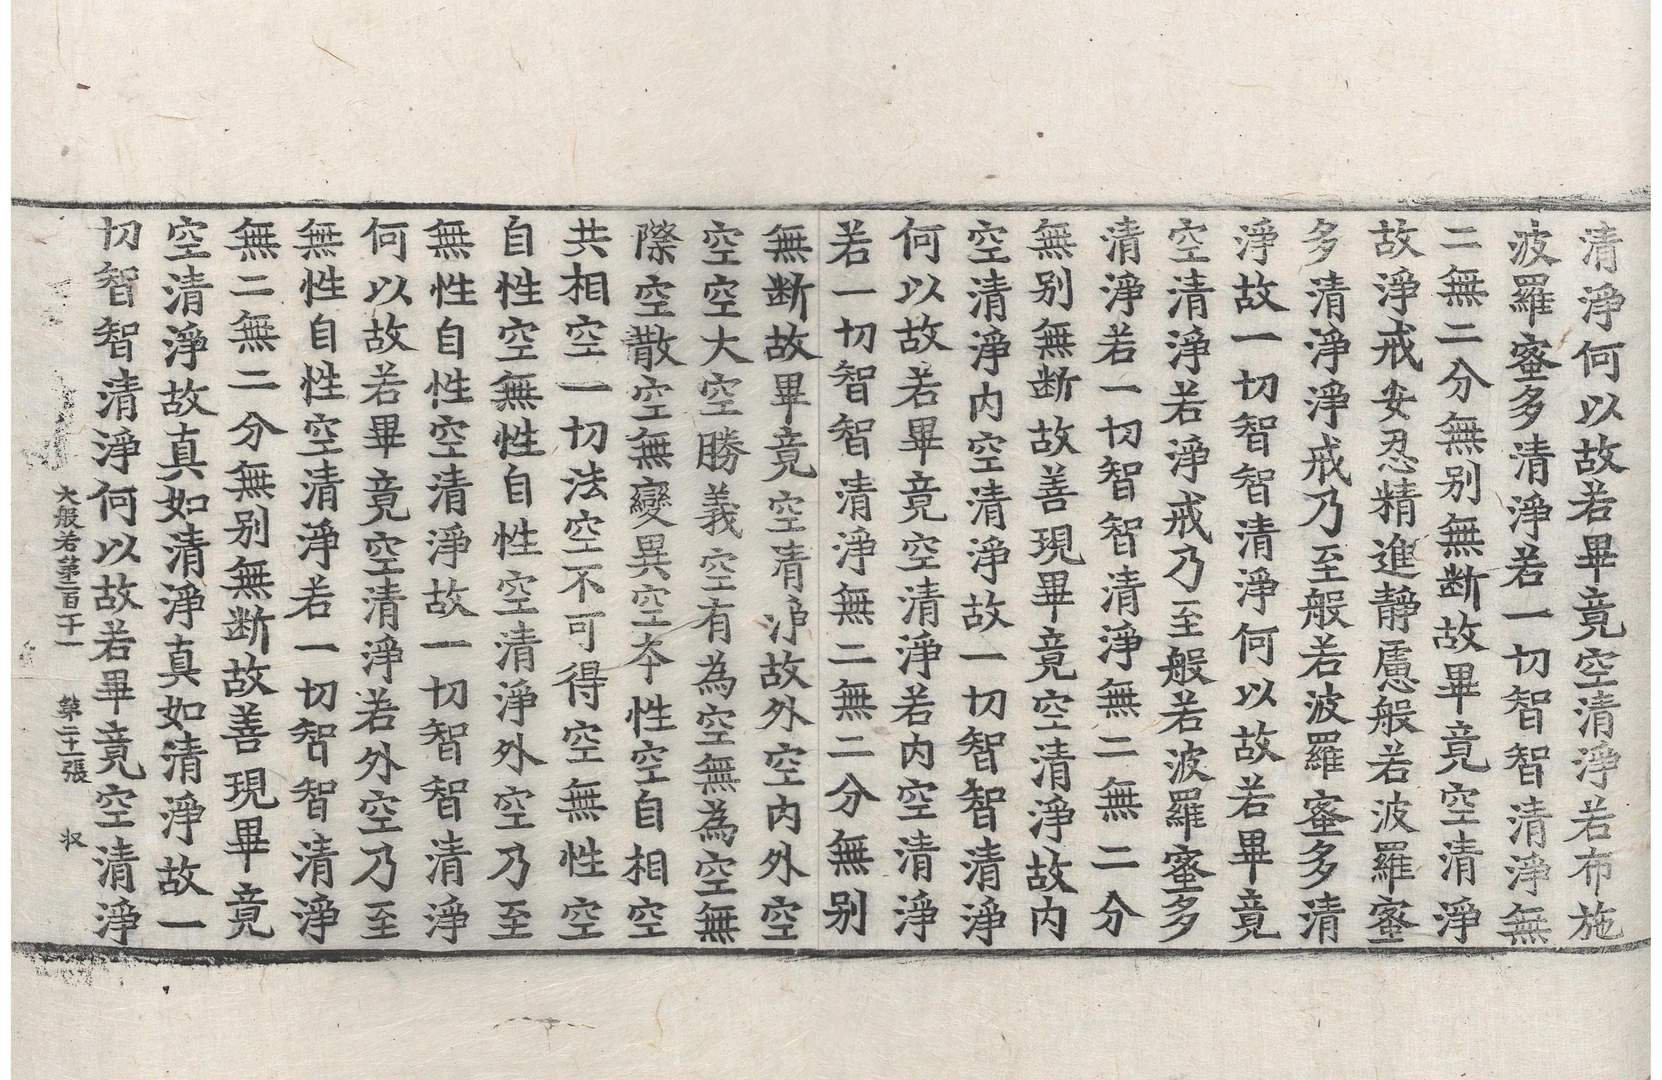 清淨何以故若畢竟空清淨若布施
波羅蜜多清淨若一切智智清淨無
二無二分無别無断故畢竟空清淨
故淨戒安忍精進靜慮般若波羅蜜
多清淨淨戒乃至般若波羅蜜多清
淨故一切智智清淨何以故若畢竟
空清淨若淨戒乃至般若波羅蜜多
清淨若一切智智清淨無二無二分
無别無断故善現畢竟空清淨故内
空清淨内空清淨故一切智智清淨
何以故若畢竟空清淨若内空清淨
若一切智智清淨無二無二分無别
無断故畢竟空清淨故外空内外空
空空大空勝義空有為空無為空無
際空散空無變異空夲性空自相空
共相空一切法空不可得空無性空
自性空無性自性空清淨外空乃至
無性自性空清淨故一切智智清淨
何以故若畢竟空清淨若外空乃至
無性自性空清淨若一切智智清淨
無二無二分無别無断故善現畢竟
空清淨故真如清淨真如清淨故一
切智智清淨何以故若畢竟空清淨
大般若第二百十一 第二十一張 収